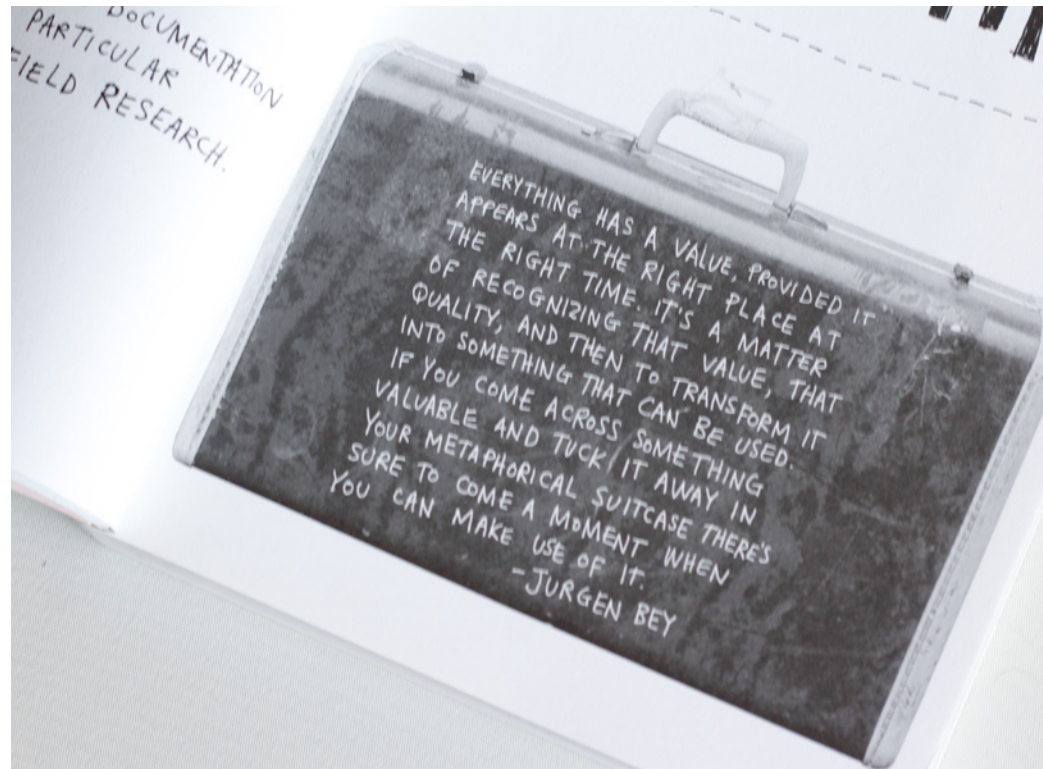 DOCUMENTATION
PARTICULAR
FIELD RESEARCH.
EVERYTHING HAS A VALUE, PROVIDED IT
APPEARS AT THE RIGHT PLACE AT
THE RIGHT TIME. IT'S A MATTER
OF RECOGNIZING THAT VALUE, THAT
QUALITY, AND THEN TO TRANSFORM IT
INTO SOMETHING THAT CAN BE USED.
IF YOU COME ACROSS SOMETHING
VALUABLE AND TUCK IT AWAY IN
YOUR METAPHORICAL SUITCASE THERE'S
SURE TO COME A MOMENT WHEN
YOU CAN MAKE USE OF IT.
-JURGEN BEY